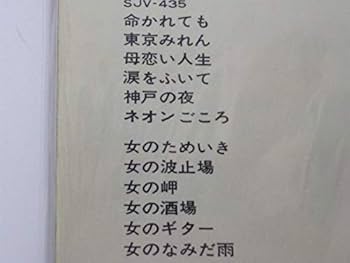 SJV-435
命かれても
東京みれん
母恋い人生
涙をふいて
神戸の夜
ネオンごころ
女のためいき
女の波止場
女の岬
女の酒場
女のギター
女のなみだ雨